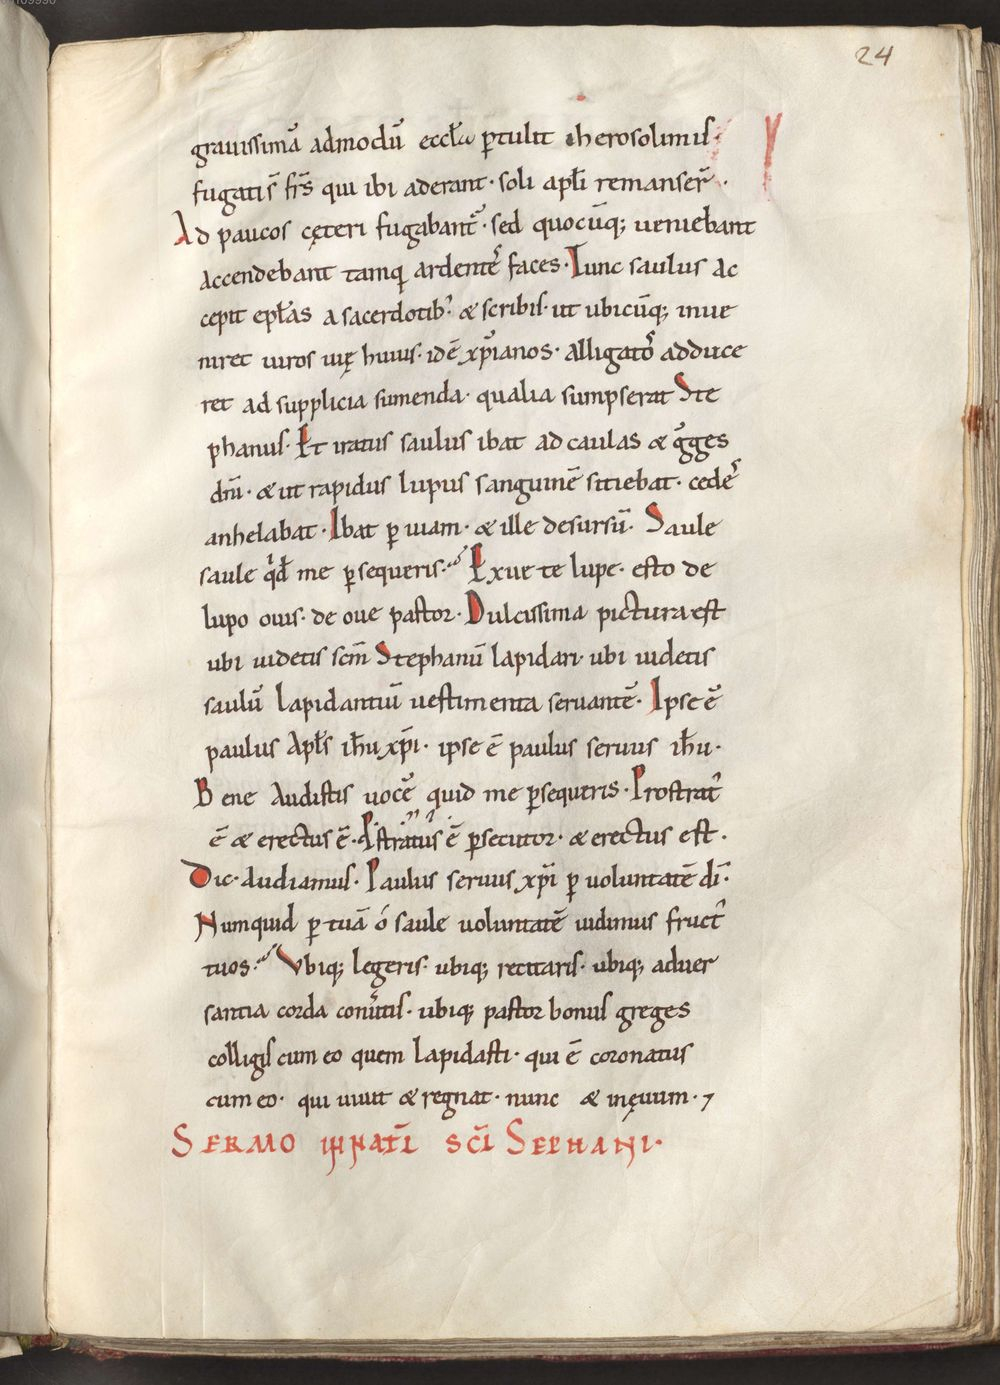 24
grauissimā admodū eccłæ ꝑtulit iherosolimis·
fugatis̄ fr̄s qui ibi aderant· soli apłi remanser̄·
Ad paucos cęteri fugabant᷑· sed quocūq; ueniebant
accendebant tamq̄ ardent̄ faces· Tunc saulus ac
cepit epłas a sacerdotib᷒ & scribis· ut ubicūq; inue
niret uiros uię huius· idē xp̄ianos· alligatos adduce
ret ad supplicia sumenda· qualia sumpserat Ste
phanus· Et iratus saulus ibat ad caulas & gͦges
dn̄i· & ut rapidus lupus sanguinē sitiebat· cedes
anhelabat· Ibat ꝑ uiam· & ille desursū· Saule
saule qͥd me ꝑsequeris·? Exue te lupe· esto de
lupo ouis· de oue pastor· Dulcissima pictura est
ubi uidetis scm̄ Stephanū lapidari· ubi uidetis
saulū lapidantiū uestimenta seruantē· Ipse ē
paulus Apłs ih̄u xp̄i· ipse ē paulus seruus ih̄u·
Bene Audistis uocē quid me ꝑsequeris· Prostrat᷒
ē & erectus ē· Pͦstratus ē ꝑsecutor· & erectus est·
Dic· Audiamus· Paulus seruus xp̄i ꝑ uoluntatē dī·
Numquid ꝑ tuā ó saule uoluntatē uidimus fruct᷒
tuos·? Vbiq; legeris· ubiq; recitaris· ubiq; aduer
santia corda conūtis· ubiq; pastor bonus greges
colligis cum eo quem lapidasti· qui ē coronatus
cum eo· qui uiuit & regnat· nunc & in ęuum·
SERMO IN NATL̄I SC̄I SEPHANI·